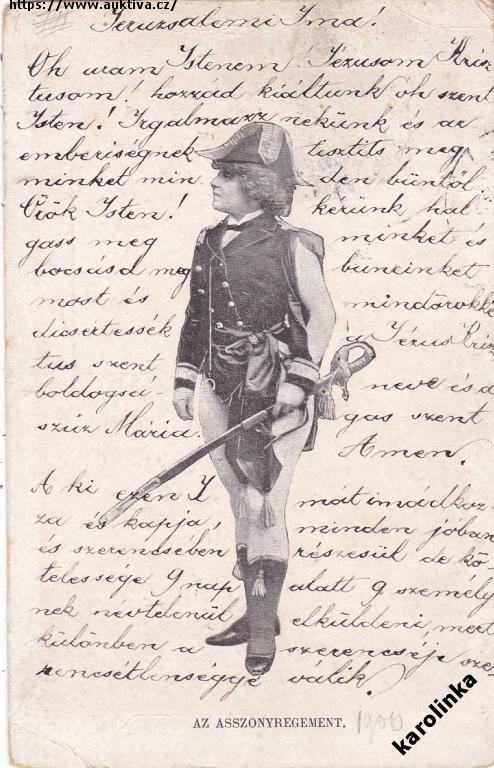 https://www.auktiva.cz/
Jeruzsalemi Ima!
Oh uram Istenem Jézusom Krisz
tusom! hozzád kiáltunk oh szent
Isten! Irgalmazz nekünk és az
emberiségnek tisztits meg
minket min den büntől
Örök Isten! kérünk hal
gass meg minket és
bocsásd meg büneinket
most és mindörökké
dicsertessék a Jézus Krisz
tus szent neve és a
boldogsá- gas szent
szüz Mária. Amen.
A ki ezen I mát imádkoz-
za és kapja, minden jóban
és szerencsében részesül de kö-
telessége 9 nap alatt 9 személy
nek nevtelenül elküldeni, mert
különben a szerencséje sze
rencsétlenséggé válik.
AZ ASSZONYREGEMENT.
karolinka